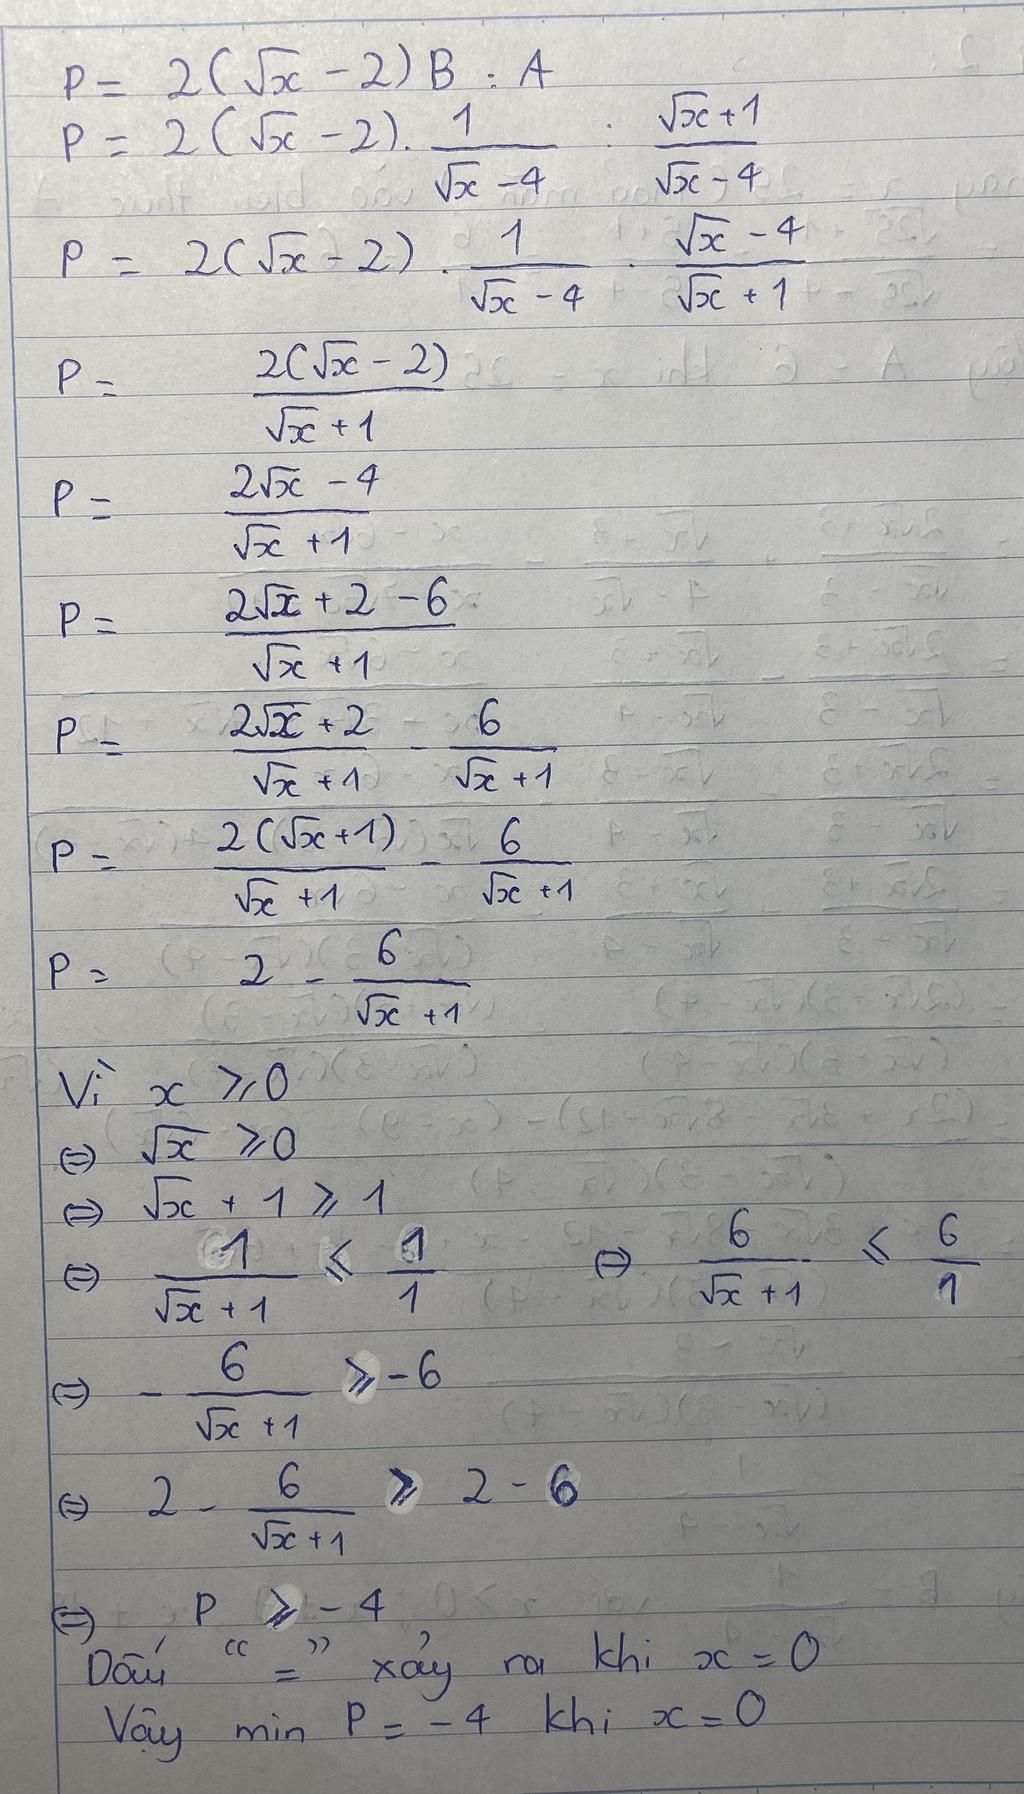 P = 2(√x - 2) B : A
P = 2(√x - 2) . 1/(√x - 4) : (√x + 1)/(√x - 4)
P = 2(√x - 2) . 1/(√x - 4) . (√x - 4)/(√x + 1)
P = 2(√x - 2)/(√x + 1)
P = (2√x - 4)/(√x + 1)
P = (2√x + 2 - 6)/(√x + 1)
P = (2√x + 2)/(√x + 1) - 6/(√x + 1)
P = 2(√x + 1)/(√x + 1) - 6/(√x + 1)
P = 2 - 6/(√x + 1)
Vì x ⩾ 0
⇔ √x ⩾ 0
⇔ √x + 1 ⩾ 1
⇔ 1/(√x + 1) ⩽ 1/1 ⇔ 6/(√x + 1) ⩽ 6/1
⇔ - 6/(√x + 1) ⩾ -6
⇔ 2 - 6/(√x + 1) ⩾ 2 - 6
⇔ P ⩾ -4
Dấu “=” xảy ra khi x = 0
Vậy min P = -4 khi x = 0